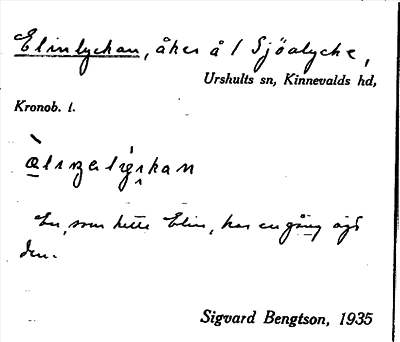 Elinlyckan, åker å 1 Sjöalycke,
Urshults sn, Kinnevalds hd,
Kronob. l.
En, som hette Elin, har en gång ägt
den.
Sigvard Bengtson, 1935